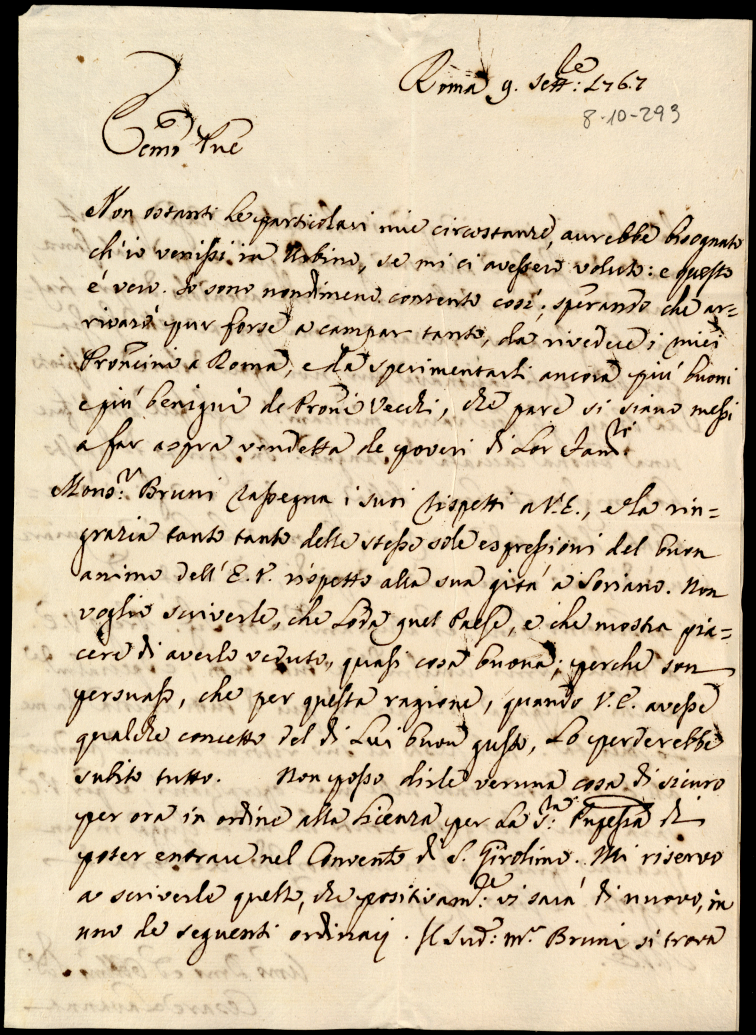 Roma 9. Sett:re 1767
8-10-293
Ecmo Pne
Non ostanti le particolari mie circostanze, aurebbe bisognato
ch'io venissi in Urbino, se mi ci avessero voluto: e questo
é vero. Io sono nondimeno contento così; sperando che ar=
rivarà pur forse a campar tanto, da rivedere i miei
Proncini a Roma, e da sperimentarli ancora più buoni
e più benigni de Proni Vecchi, che pare si siano messi
a far aspra vendetta de poveri di Lor
Mons:r Bruni rassegna i suoi rispetti a V.E., e la rin=
grazia tanto tanto delle stesse sole espressioni del buon
animo dell'E.V. rispetto alla sua gita a Soriano. Non
voglio scriverle, che loda quel Paese, e che mostra pia=
cere di averlo veduto, quasi cosa buona; perche son
persuaso, che per questa ragione, quando V.E. avesse
qualche concetto del di Lui buon gusto, lo perderebbe
subito tutto. Non posso dirle veruna cosa di sicuro
per ora in ordine alla licenza per la S:ra Pnpessa di
poter entrare nel Convento di S. Girolimo. Mi riservo
a scriverle quello, che positivam:te vi sarà di nuovo, in
uno de seguenti ordinarj. Il sud:o m.r Bruni si trova